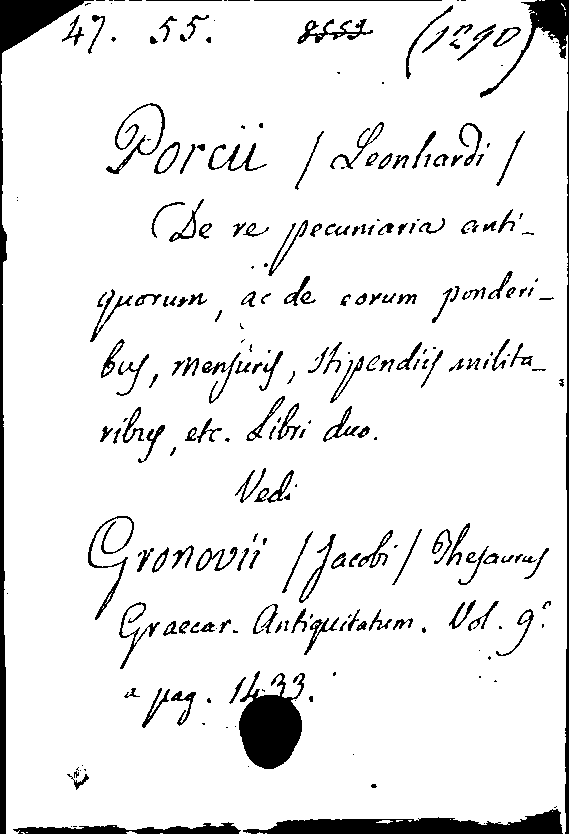 47. 55. 8559 (1290)
Porcii / Leonhardi /
De re pecuniaria anti-
quorum, ac de eorum ponderi-
bus, mensuris, stipendiis milita-
ribus, etc. Libri duo.
Vedi
Gronovii / Jacobi / Thesaurus
Graecar. Antiquitatum. Vol. 9.°
a pag. 1433.